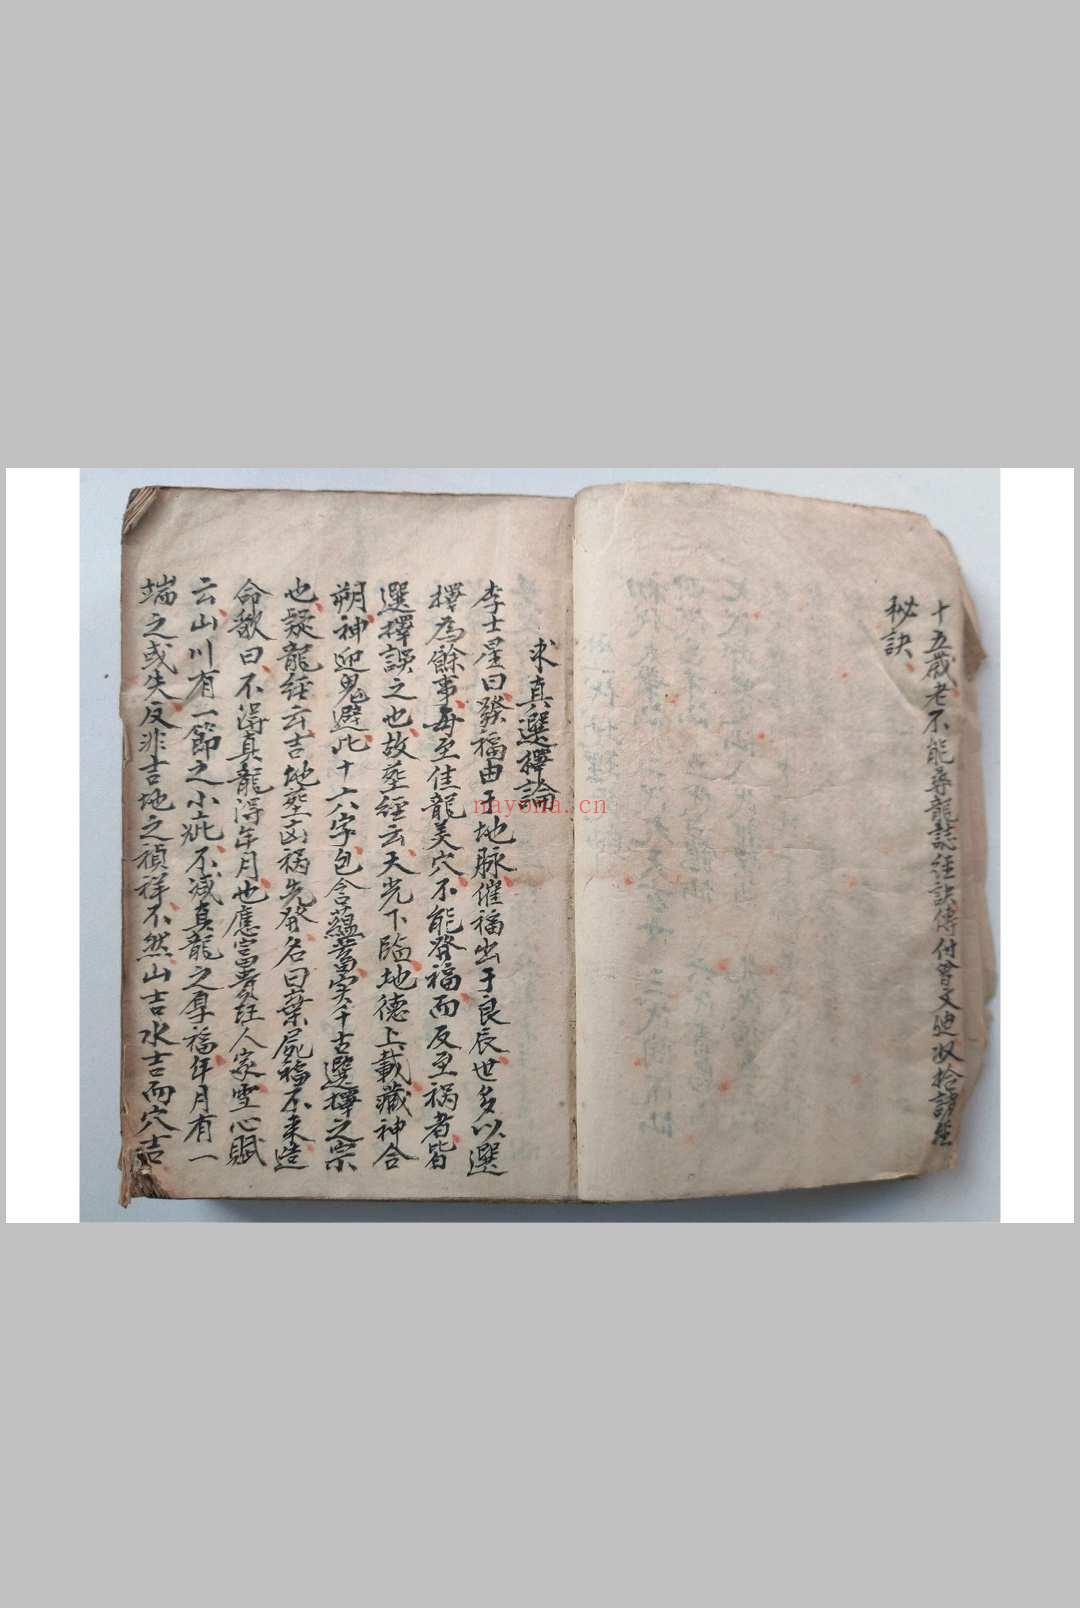 十五歲老不能尋龍誌經訣傳付曾文迪收拾諸經
秘訣
求真選擇論
李士星曰發福由于地脉催福出于良辰世多以選
擇為餘事每至佳龍美穴不能發福而反至禍者皆
選擇誤之也故塟經云天光下臨地德上載藏神合
朔神迎鬼避此十六字包含蘊蓄實千古選擇之宗
也疑龍經云吉地塟凶禍先發名曰棄屍福不来造
命歌曰不得真龍得年月也應富貴旺人家雪心賦
云山川有一節之小疵不減真龍之厚福年月有一
端之或失反非吉地之禎祥不然山吉水吉而穴吉
nayona.cn